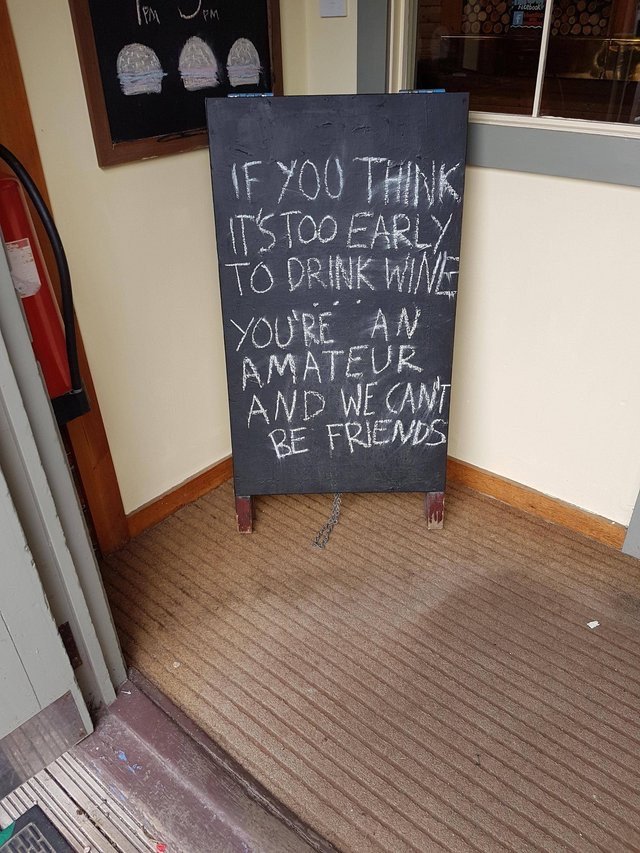 1PM 5PM
Facebook
IF YOU THINK
IT'S TOO EARLY
TO DRINK WINE
....
YOU'RE AN
AMATEUR
AND WE CAN'T
BE FRIENDS